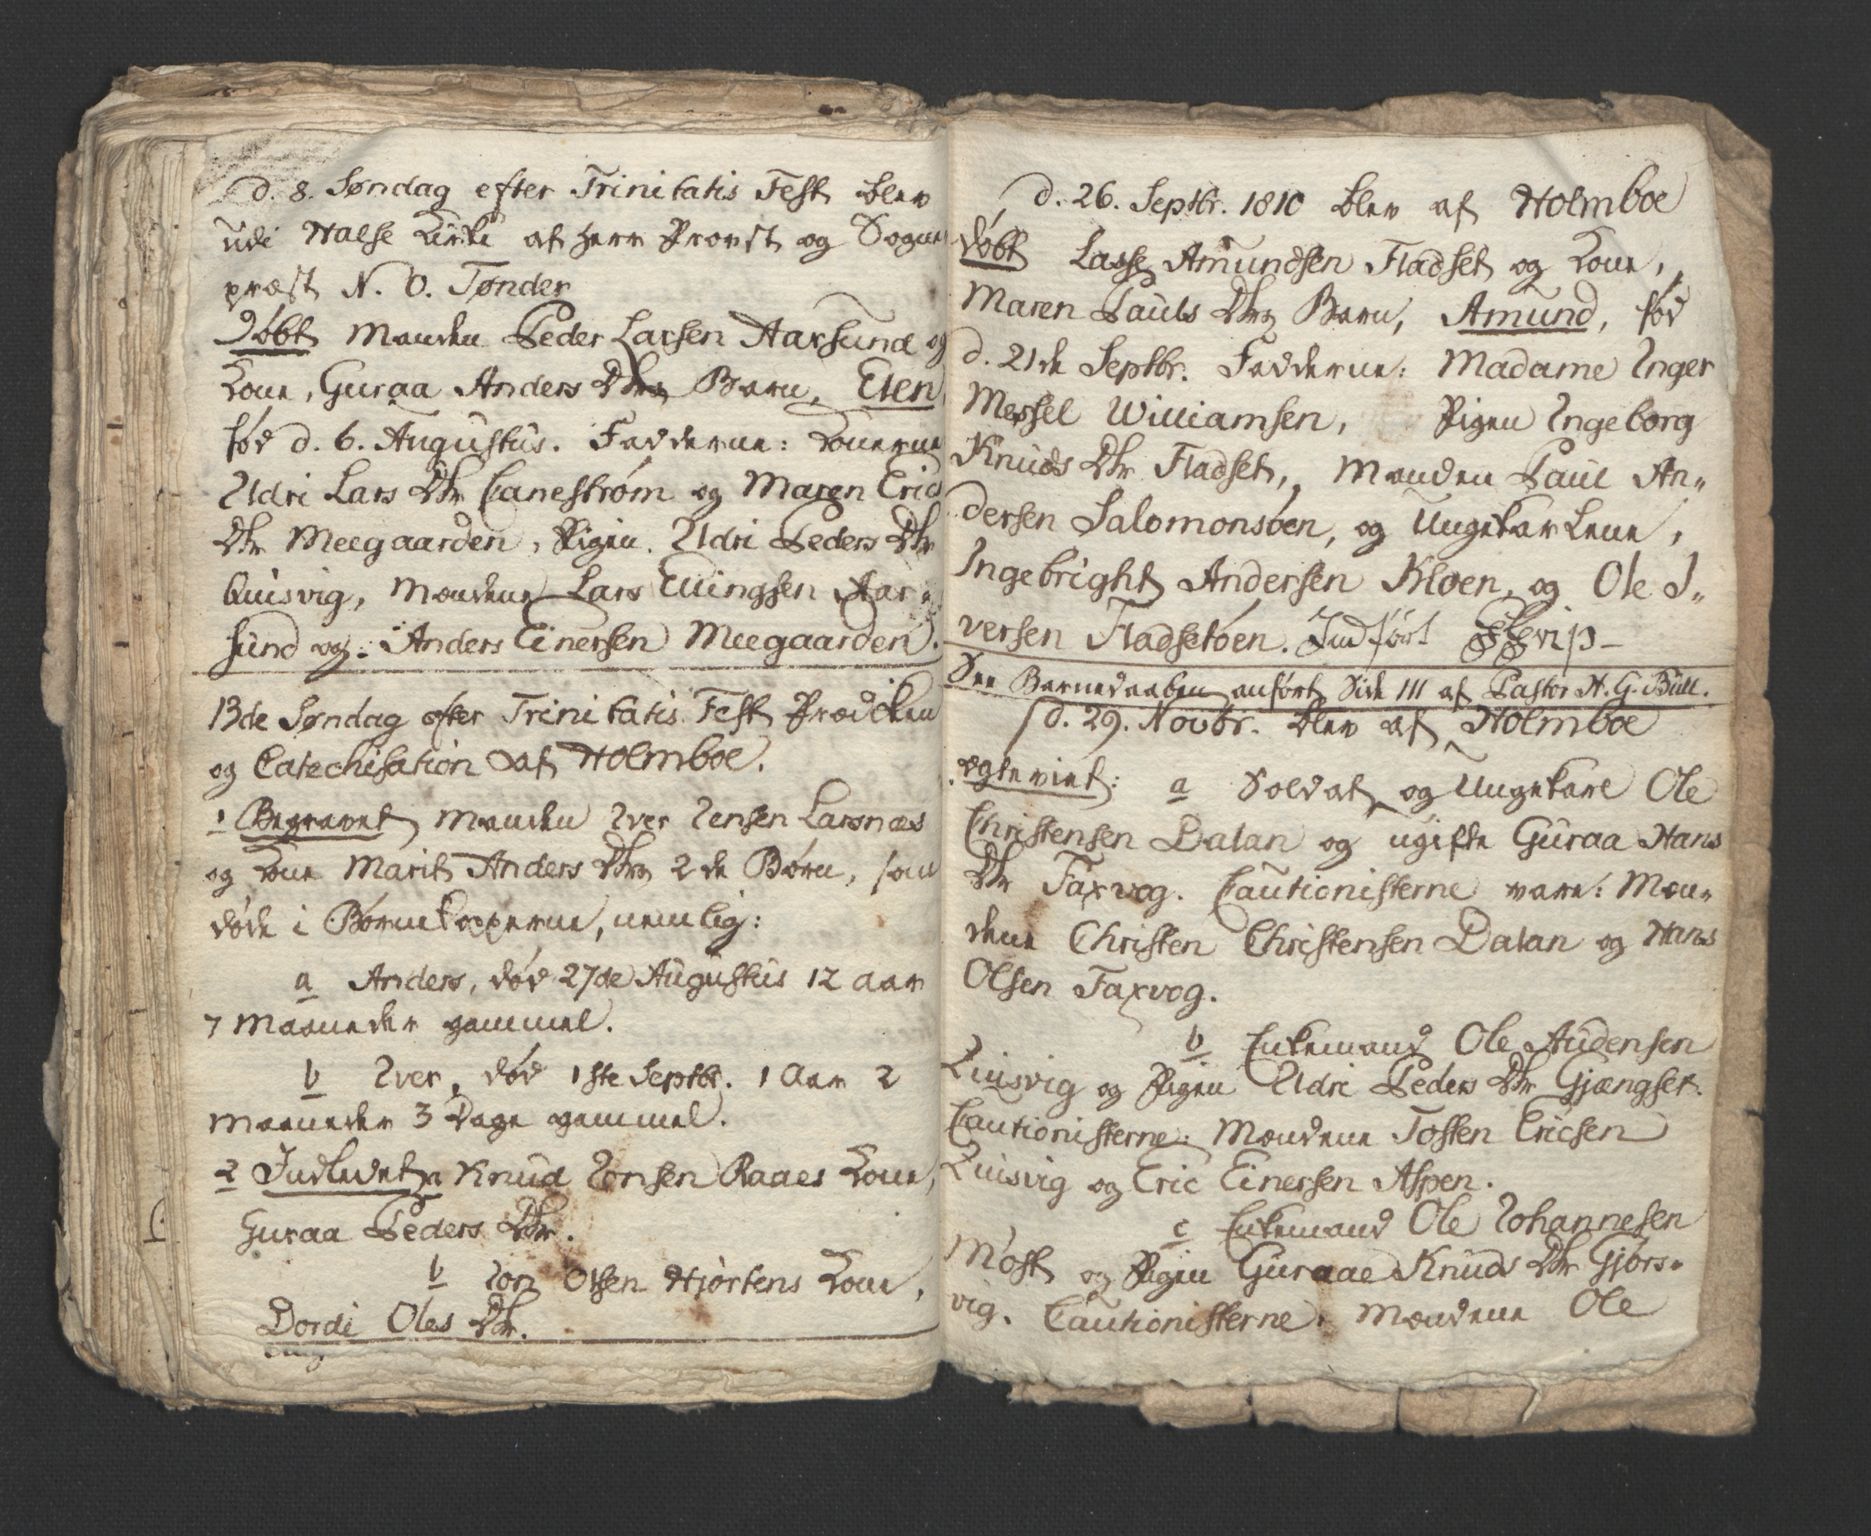 d. 8. Søndag efter Trinitatis Fest blev
udi Halse Kirke af Herr Provst og Sogne
præst N. V. Tønder
Døbt Manden Peder Larsen Aarsund og
Kone, Guraa Anders Dtrs Barn, Elen
fød d. 6. Augustus. Fadderne: Konerne
Eldri Lars Dtr Canestrøm og Maren Erics
Dtr Meegaarden, Pigen Eldri Peders Dtr
Quisvig, Mændene Lars Ellingsen Aar-
sund og Anders Einersen Meegaarden.
13de Søndag efter Trinitatis Fest Prædiken
og Catechisation af Holmboe.
1 Begravet Manden Iver Jensen Larsnæs
og Kone Marit Anders Dtrs 2de Børn, som
døde i Børnekopperne, nemlig:
a Anders, død 27de Augustus 12 Aar
7 Maaneder gammel.
b Iver, død 1ste Septbr. 1 Aar 2
Maaneder 3 Dage gammel.
2 Indledet a Knud Jonsen Raaes Kone,
Guraa Peders Dtr.
b Jon Olsen Hjørtens Kone,
Dordi Oles Dtr.
d. 26. Septbr. 1810 blev af Holmboe
Døbt Lasse Amundsen Fladset og Kone,
Maren Pauls Dtrs Barn, Amund, fød
d. 21de Septbr. Fadderne: Madame Inger
Messel Williamsen, Pigen Ingeborg
Knuds Dtr Fladset, Manden Paul An-
dersen Salomonsøen, og Ungekarlene,
Ingebright Andersen Kløen, og Ole I-
versen Fladsetøen. Indført
See Barnedaaben anført Side 111 af Pastor H. G. Bull.
d. 29. Novbr. blev af Holmboe
ægteviet: a Soldat og Ungekarl Ole
Christensen Dalan og ugifte Guraa Hans
Dtr Faxvog. Cautionisterne vare: Mæn-
dene Christen Christensen Dalan og Hans
Olsen Faxvog.
b Enkemand Ole Audensen
Quisvig og Pigen Eldri Peders Dtr Gjængset.
Cautionisterne: Mændene Tosten Ericsen
Quisvig og Eric Einersen Aspen.
c Enkemand Ole Johannesen
Most og Pigen Guraae Knuds Dtr Gjørs-
vig. Cautionisterne: Mændene Ole